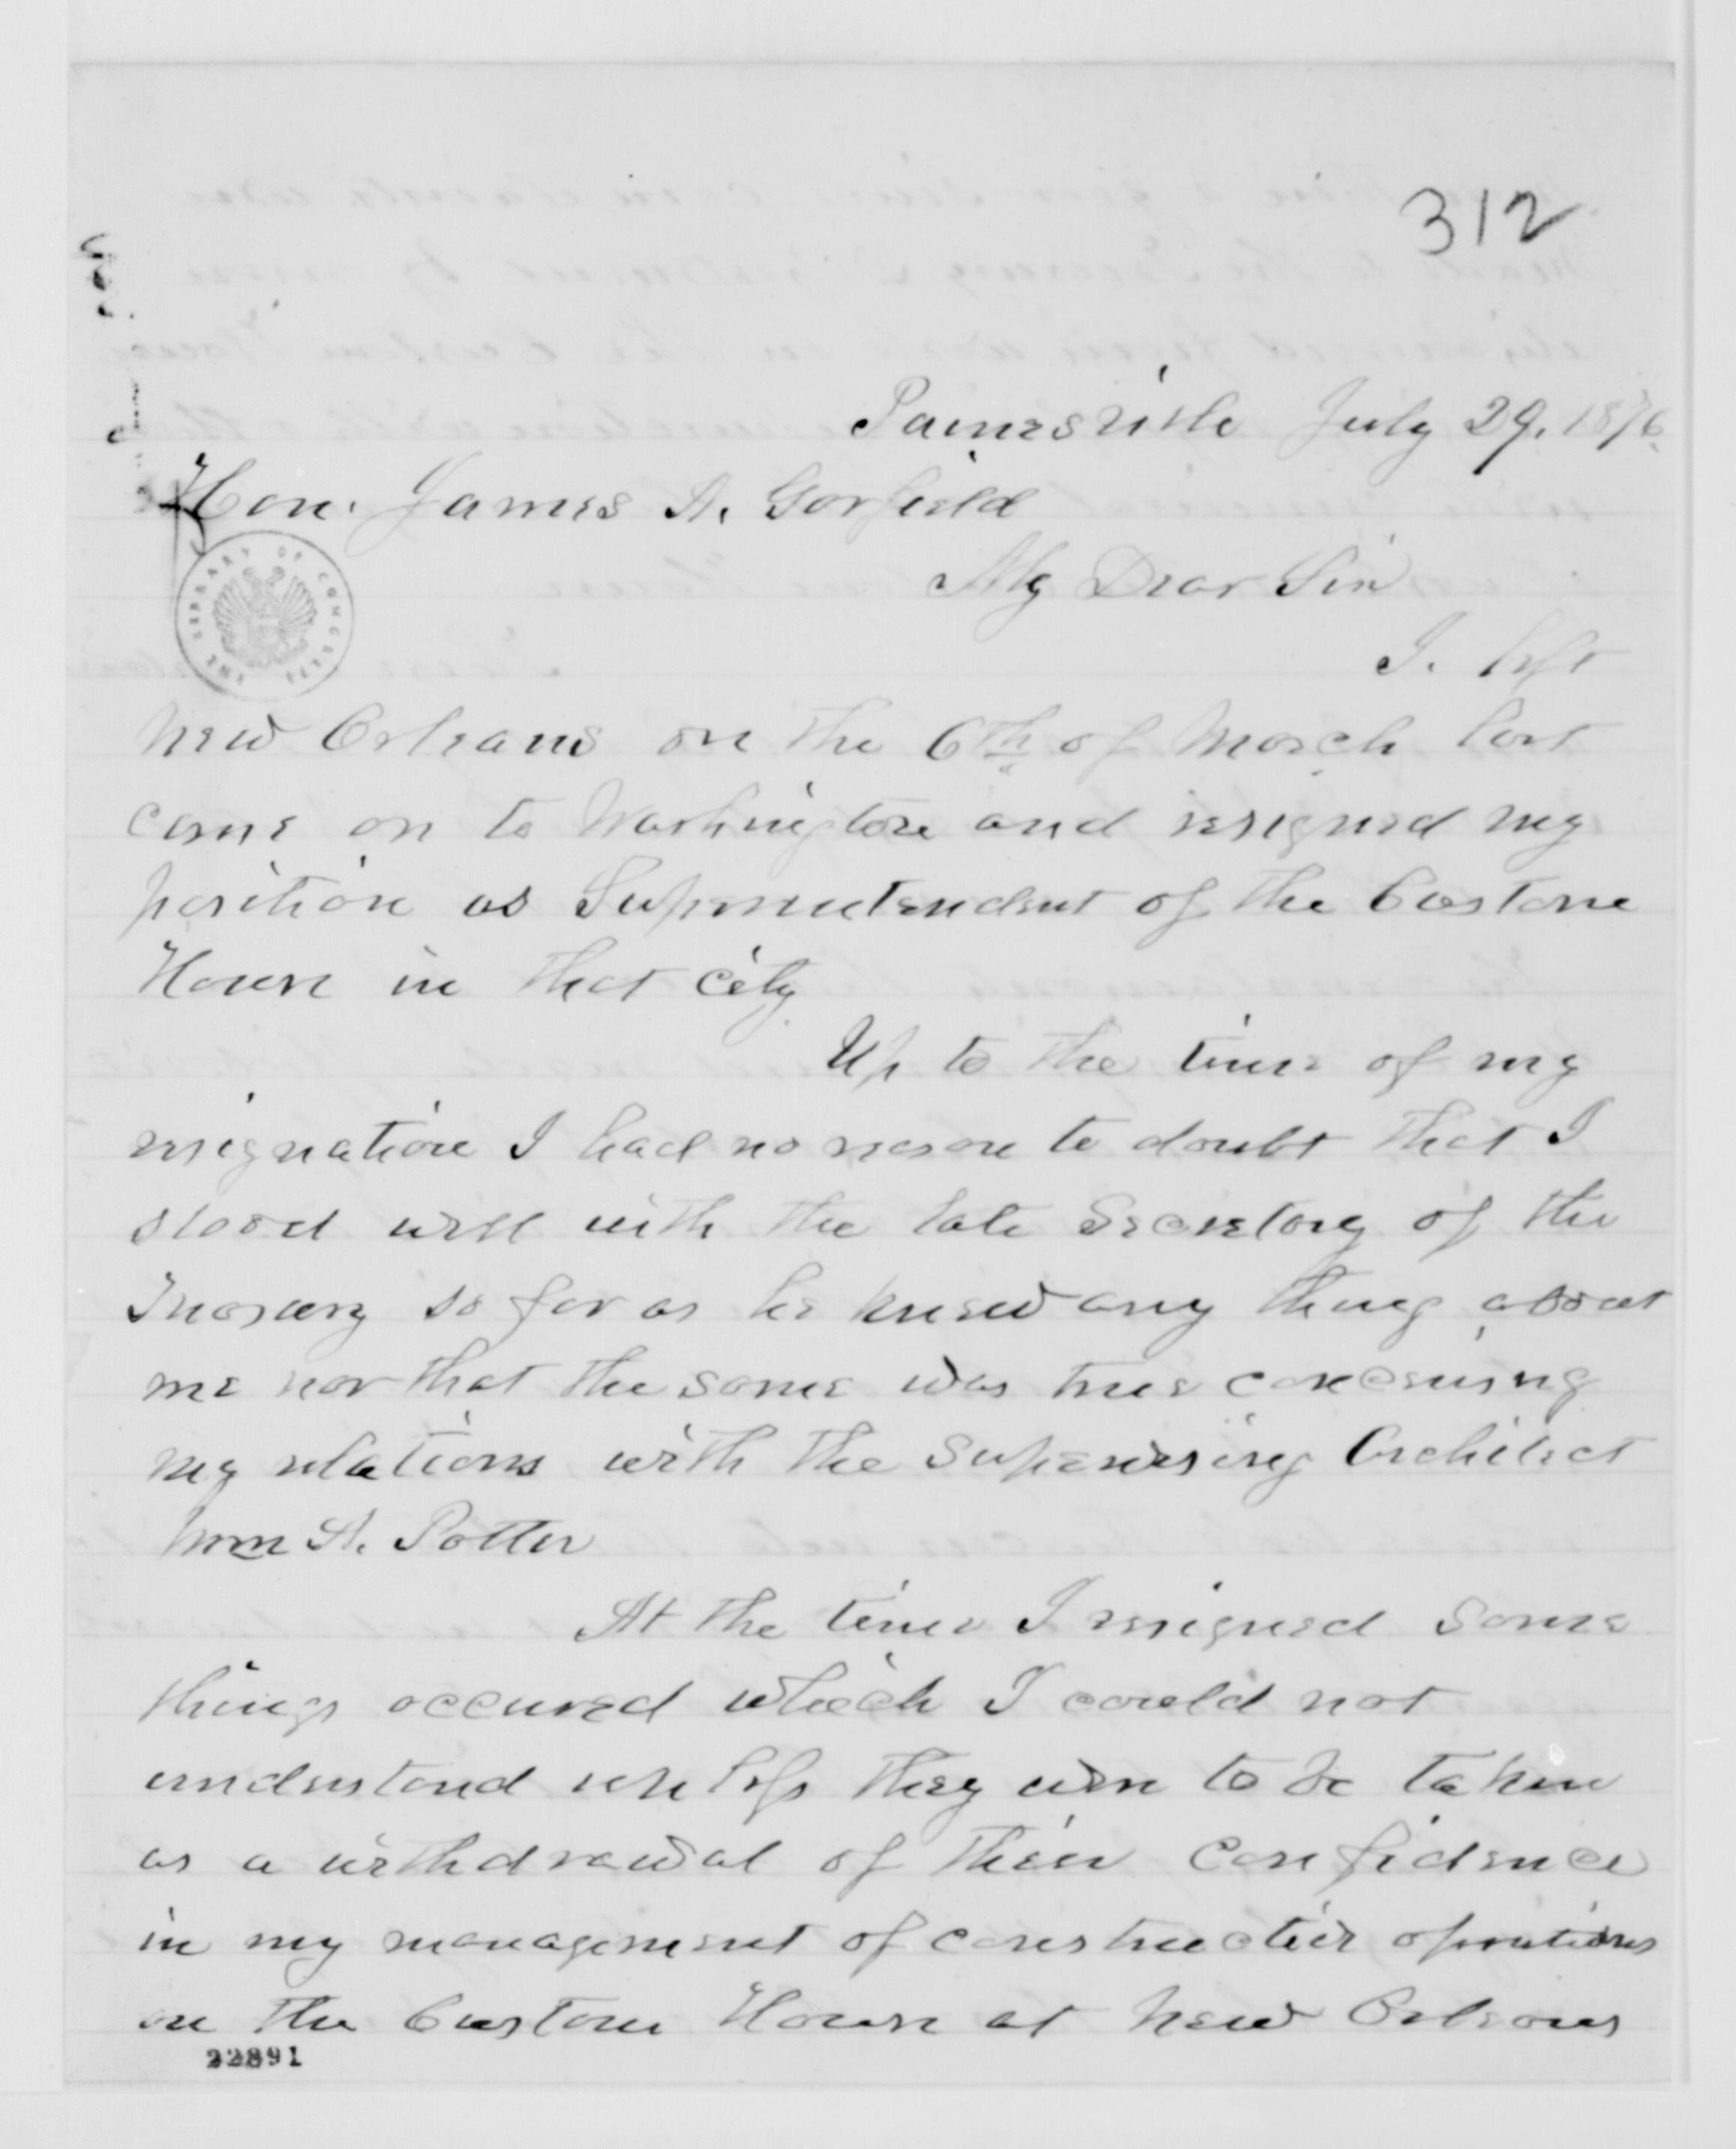 312
Painesville July 29. 1876.
Hon. James A. Garfield
My Dear Sir
THE LIBRARY OF CONGRESS
I. left
New Orleans on the 6th of March last
came on to Washington and resigned my
position as Superintendent of the Custom
House in that City
Up to the time of my
resignation I had no reason to doubt that I
stood well with the late Secretary of the
Treasury so far as he knew any thing about
me nor that the same was true concerning
my relations with the Supervising Architect
Wm A. Potter
At the time I resigned some
things occured which I could not
understand unless they were to be taken
as a withdrawal of their confidence
in my management of construction operations
on the Custom House at New Orleans
22891